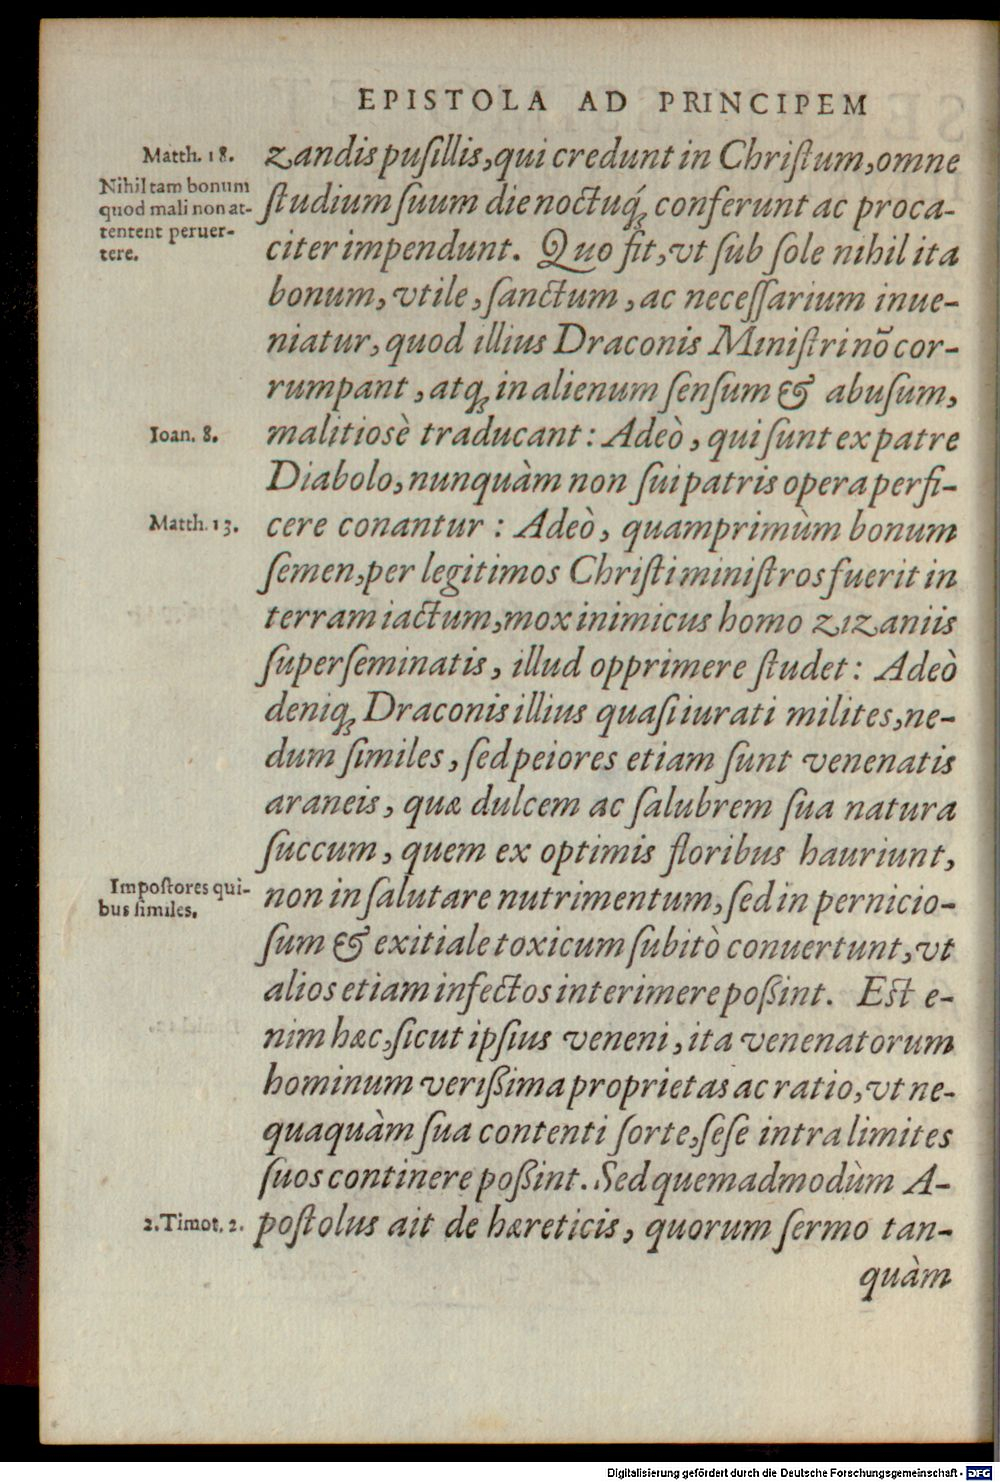 EPISTOLA AD PRINCIPEM
Matth. 18.
Nihil tam bonum
quod mali non at-
tentent peruer-
tere.
zandis pusillis, qui credunt in Christum, omne
studium suum die noctuq́; conferunt ac proca-
citer impendunt. Quo fit, vt sub sole nihil ita
bonum, vtile, sanctum, ac necessarium inue-
niatur, quod illius Draconis Ministri nõ cor-
rumpant, atq; in alienum sensum & abusum,
Ioan. 8.
malitiosè traducant: Adeò, qui sunt ex patre
Diabolo, nunquàm non sui patris opera perfi-
Matth. 13.
cere conantur: Adeò, quamprimùm bonum
semen, per legitimos Christi ministros fuerit in
terram iactum, mox inimicus homo zizaniis
superseminatis, illud opprimere studet: Adeò
deniq; Draconis illius quasi iurati milites, ne-
dum similes, sed peiores etiam sunt venenatis
araneis, quæ dulcem ac salubrem sua natura
succum, quem ex optimis floribus hauriunt,
Impostores qui-
bus similes.
non in salutare nutrimentum, sed in pernicio-
sum & exitiale toxicum subitò conuertunt, vt
alios etiam infectos interimere poßint. Est e-
nim hæc, sicut ipsius veneni, ita venenatorum
hominum verißima proprietas ac ratio, vt ne-
quaquàm sua contenti sorte, sese intra limites
suos continere poßint. Sed quemadmodùm A-
2. Timot. 2.
postolus ait de hæreticis, quorum sermo tan-
quàm
Digitalisierung gefördert durch die Deutsche Forschungsgemeinschaft - DFG